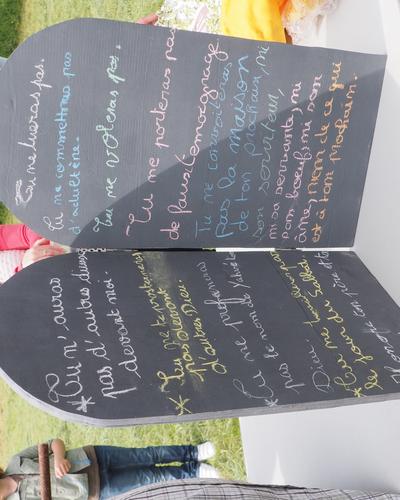 * Tu n'auras
pas d'autres dieux
devant moi.
* Tu ne te prosterneras
pas devant
d'autres Dieu.
* Tu ne prononceras
pas le nom de
Dieu
* Tu
le jour du Sabbat.
Honore ton père et
Tu ne tueras pas.
Tu ne commettras pas
d'adultère.
Tu ne voleras pas.
Tu ne porteras pas
de faux témoignage
Tu ne convoiteras
pas la maison
de ton prochain, ni
son serviteur,
ni sa servante, ni
son boeuf, ni son
âne, rien de ce qui
est à ton Prochain.